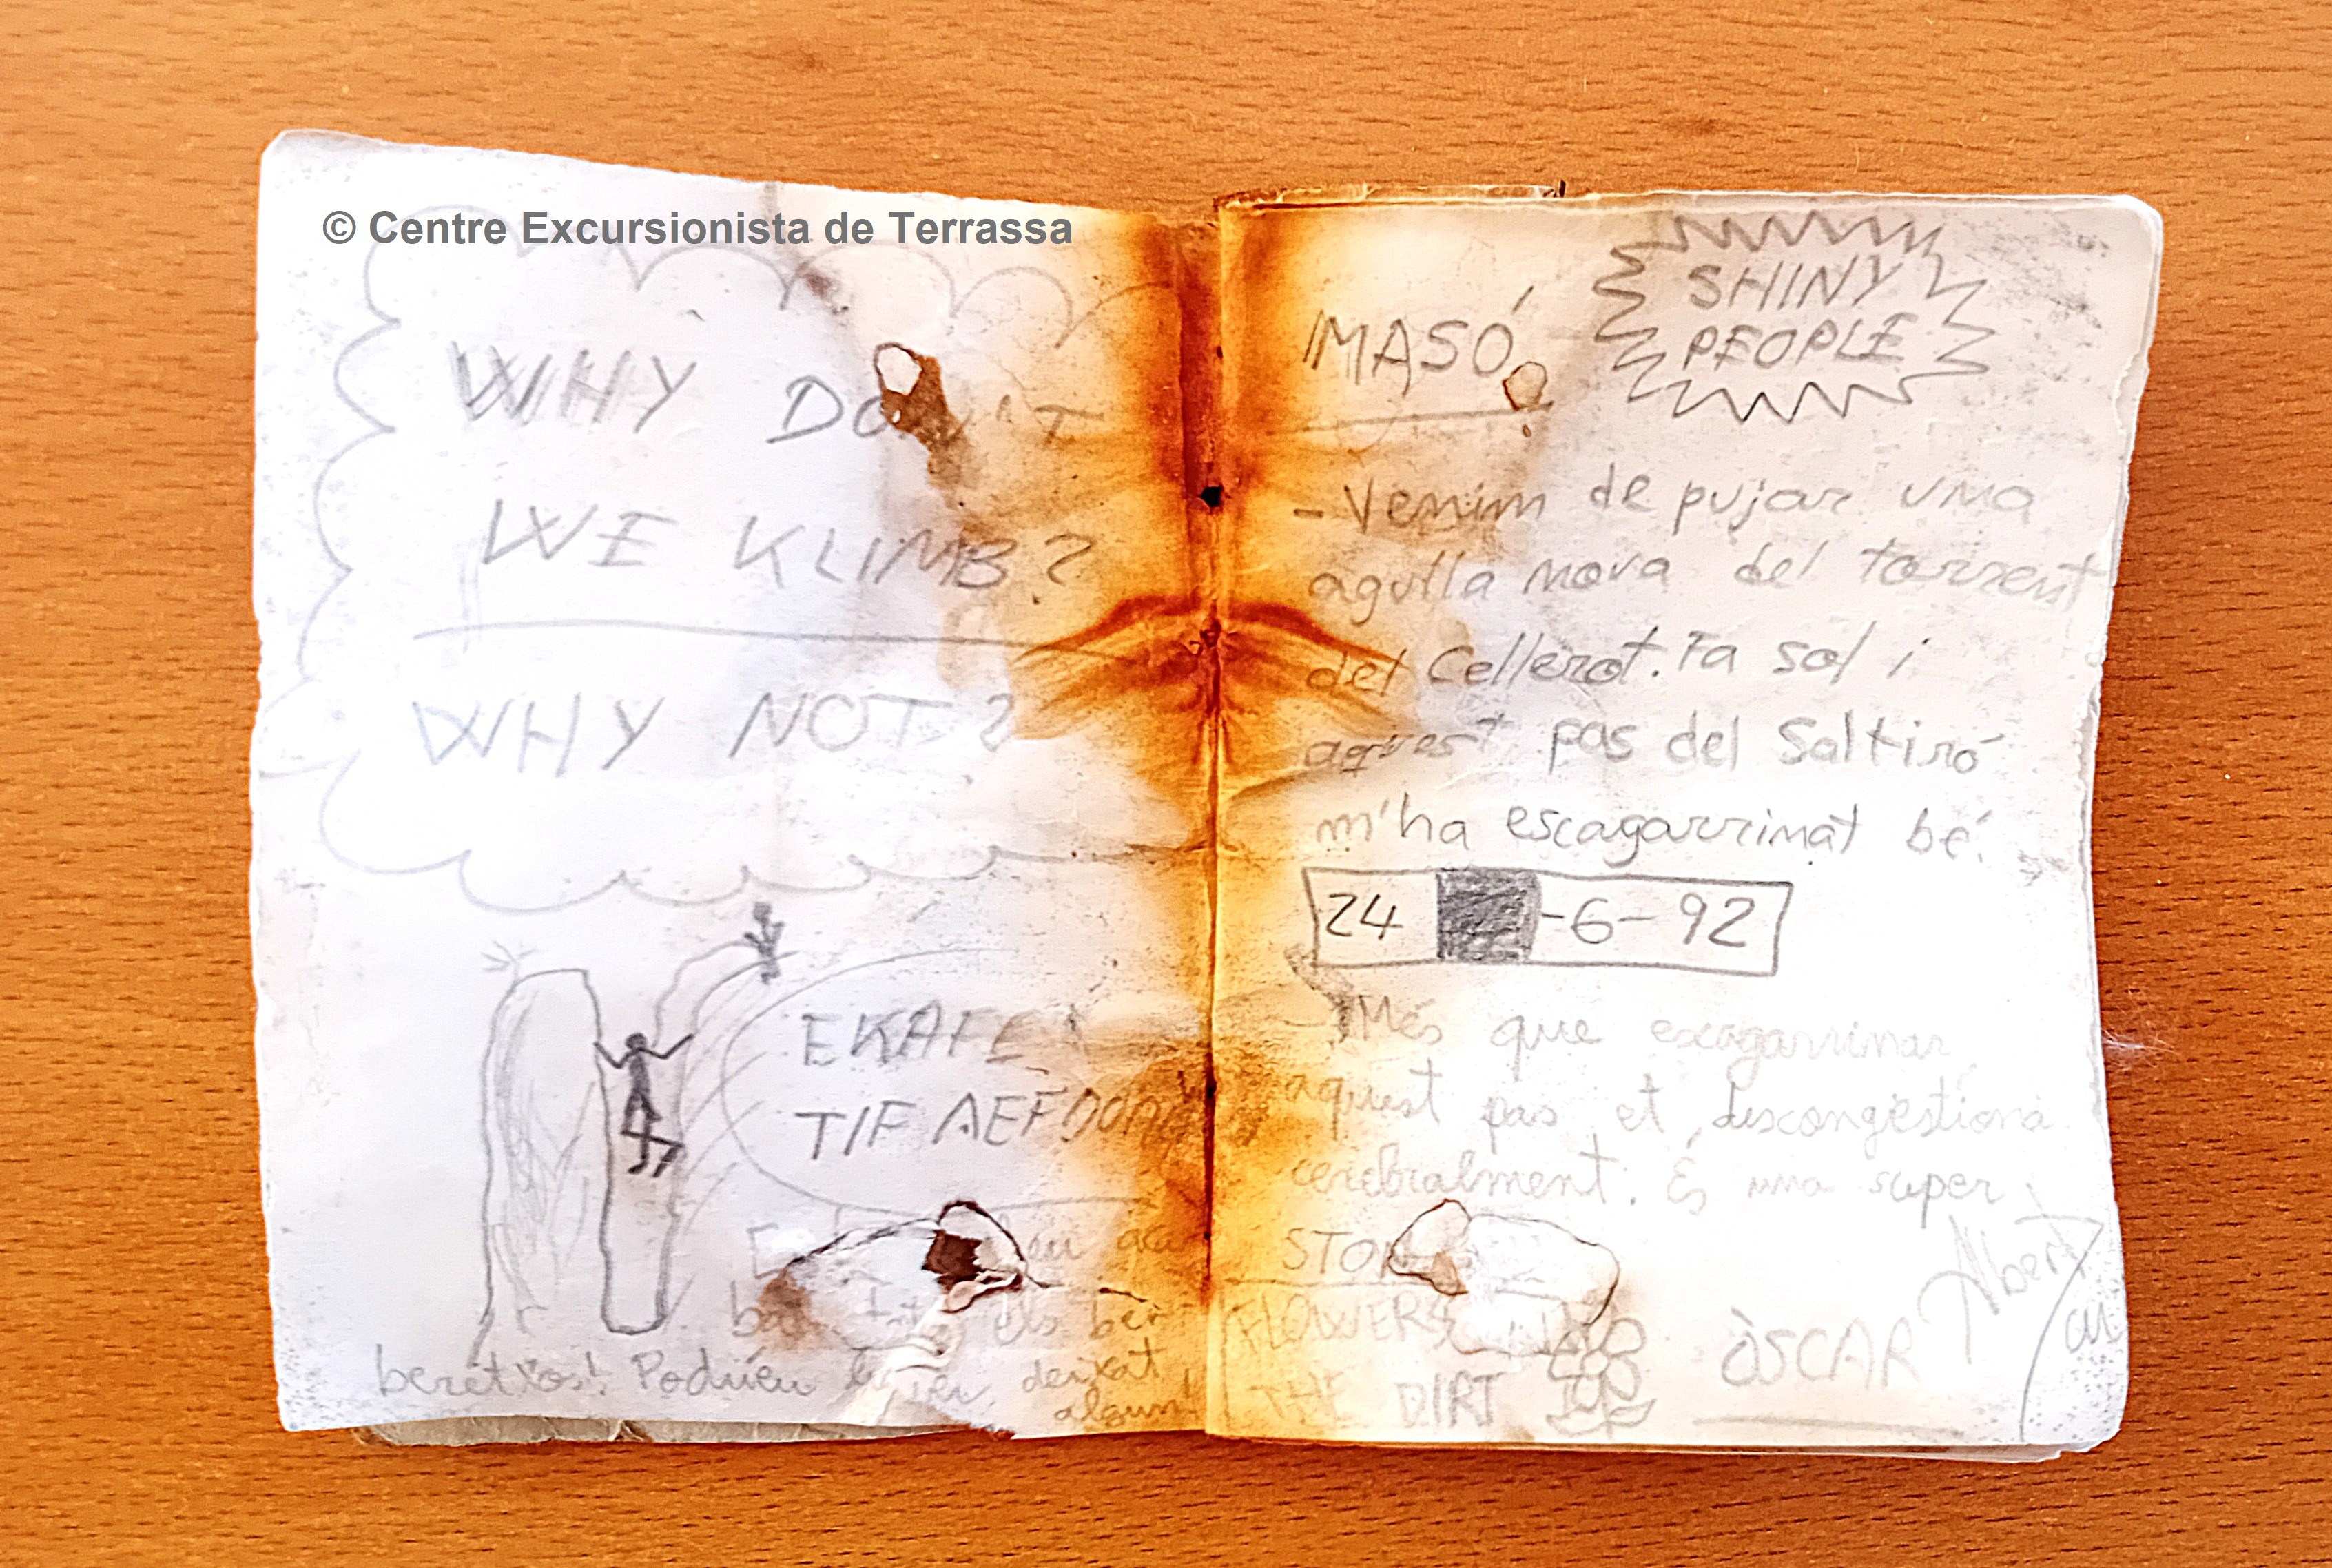 © Centre Excursionista de Terrassa
WHY DON'T
WE KLIMB?
WHY NOT?
EKAFE
TIF
els
beretxos! Podríeu deixat
algun!
IMASÓ
SHINY
PEOPLE
- Venim de pujar una
agulla nova del torrent
del Cellerot. Fa sol i
aquest pas del Saltiró
m'ha escagarrinat bé.
24 -6-92
- Més que escagarrinar
aquest pas et descongestiona
cerebralment. És una super
FLOWERS
THE DIRT
ÒSCAR
Albert